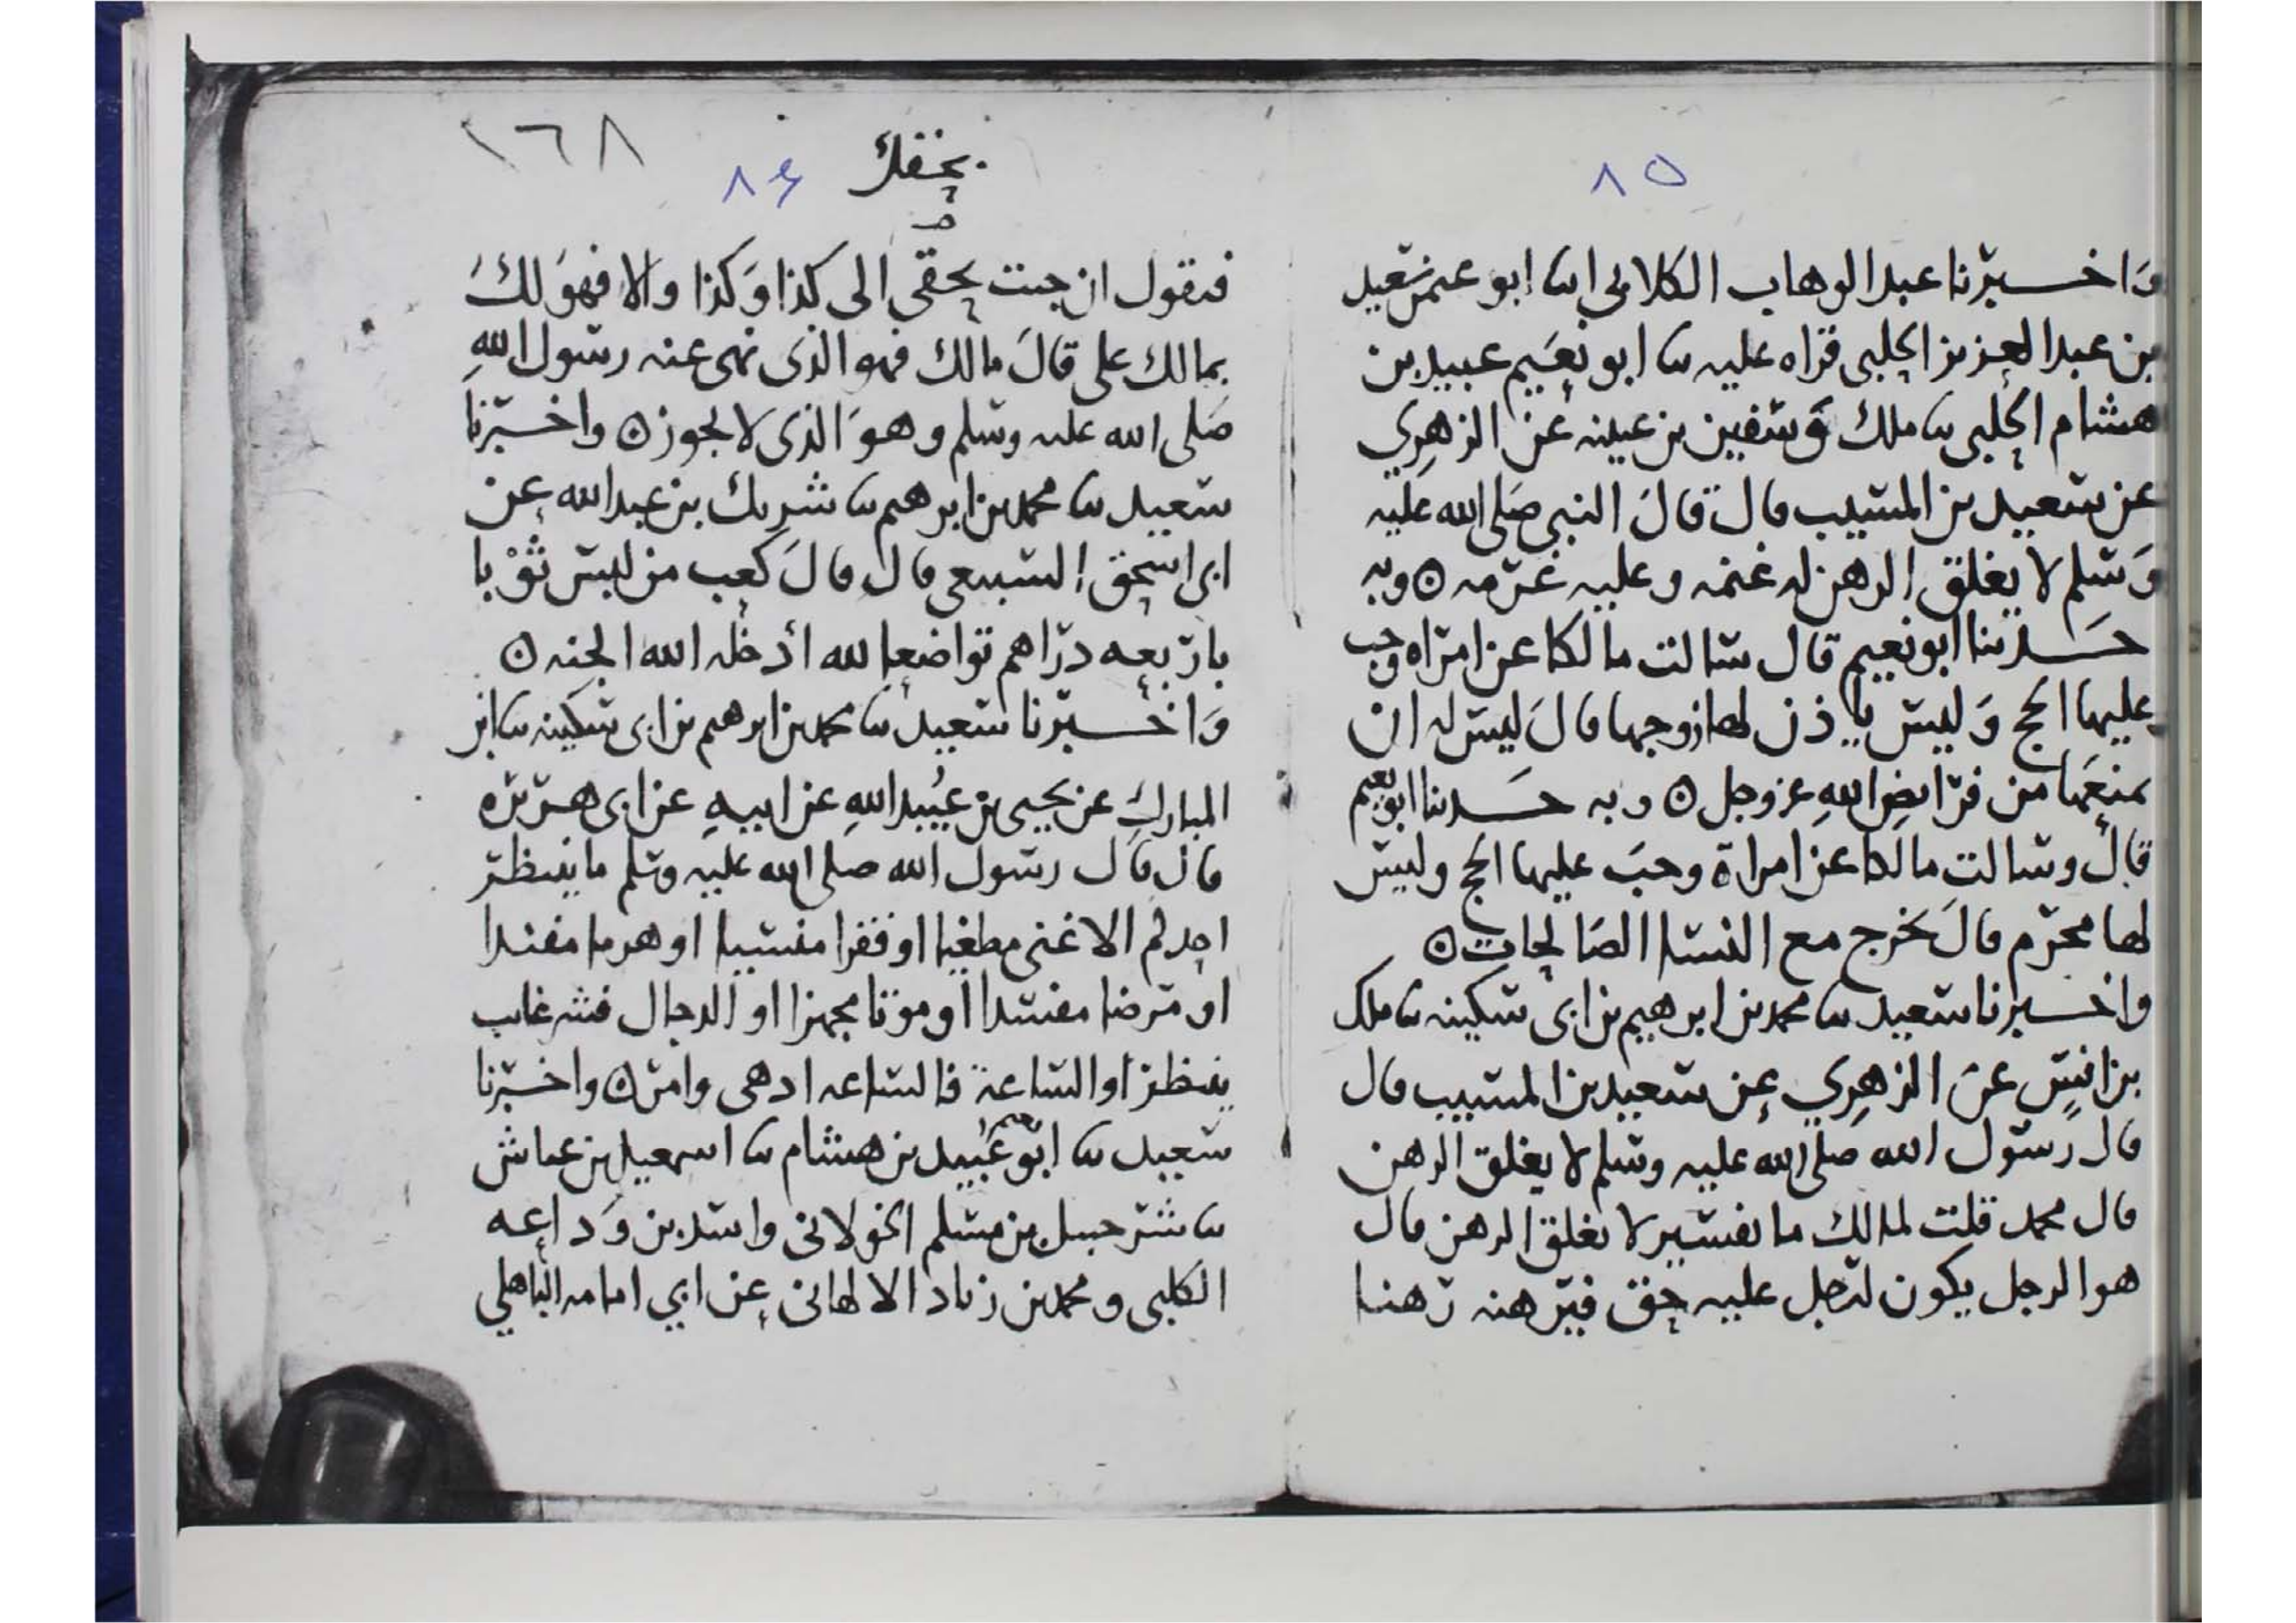 ٨٥
وَاخـــبرنا عبد الوهاب الكلابي انا ابو عمر سعيد
بن عبد العزيز الحلبي قراه عليه نا ابو نعيم عبيد بن
هشام الحلبي نا ملك وسفين بن عيينه عن الزهرِي
عن سعيد بن المسيب قال قالَ النبي صَلى الله عليه
وَسلم لا يغلق الرهن له غنمه وعليه غرمه ٥ وبه
حَــدثنا ابو نعيم قال سالت مالكا عن امراه وجب
عليها الحج وَليس ياذن لها زوجها قالَ ليس له ان
يمنعَها من فرايضِ اللهِ عز وجل ٥ وبه حَــدثنا ابو نعيم
قال وسالت مالكا عن امراة وجبَ عليها الحج وليس
لها محرم قالَ تخرج مع النسا الصَالحات ٥
واخـــبرنا سعيد نا محمد بن ابرهيم بن ابى سكينه نا ملك
بن انسٍ عن الزهرِي عن سعيد بن المسيب قال
قال رَسول الله صلى الله عليه وسلم لا يغلق الرهن
قال محمد قلت لمالك ما تفسير لا يغلق الرهن قال
هو الرجل يكون لرجل عليه حق فيرهنه رَهنا
١٦٨
بحقك ٨٤
صـ
فيقول ان جيت بحقى الى كذا وَكذا والا فهوَ لكَ
بمالك على قالَ مالك فهو الذى نهى عنه رسول اللهِ
صَلى الله عليه وسلم وهوَ الذى لا يجوز ٥ واخـبرنا
سعيد نا محمد بن ابرهيم نا شريك بن عبد الله عن
ابى اسحق السبيعى قال قالَ كعب من لبس ثوْبا
باربعه دراهم تواضعا لله أدخله الله الجنه ٥
وَاخـــبرنا سعيد نا محمد بن ابرهيم بن ابى سكينه نا ابن
المبارك عن يحيى بن عُبيد اللهِ عن ابيهِ عن ابى هريره
قال قال رسول الله صلى الله عليه وسلم ما ينتظر
احدكم الا غنى مطغيا او فقرا منسيا او هرما مفندا
او مرضا مفسدا او موتا مجهزا او الدجال فشر غايب
ينتظر او الساعة فالساعه ادهى وامر ٥ واخـبرنا
سعيد نا ابو نعيم عُبيد بن هشام نا اسمعيل بن عياش
نا شرحبيل بن مسلم الخولانى واسد بن وَداعه
الكلبى ومحمد بن زياد الالهانى عن ابي امامه الباهلي